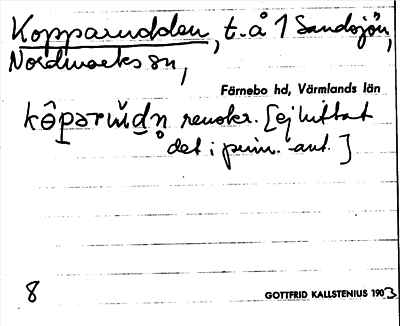 Kopparudden, t. å 1 Sandsjön,
Nordmarks sn,
Färnebo hd, Värmlands län
renskr. [ej hittat
det i prim. ant.]
8
GOTTFRID KALLSTENIUS 1903